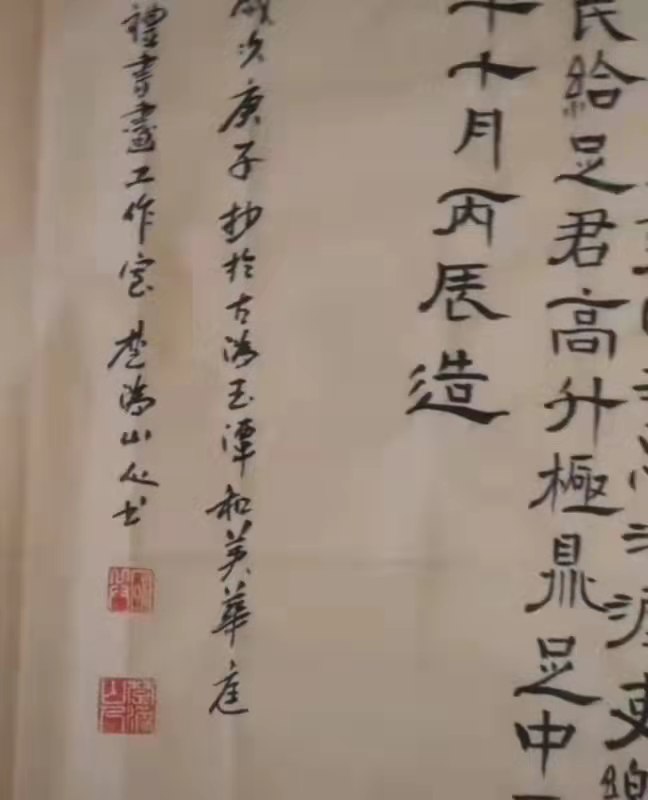 吏
民給足君高升極鼎足中
十月丙辰造
歲次庚子抄於古溈玉潭和美華庭
禮書畫工作室 楚溈山人书